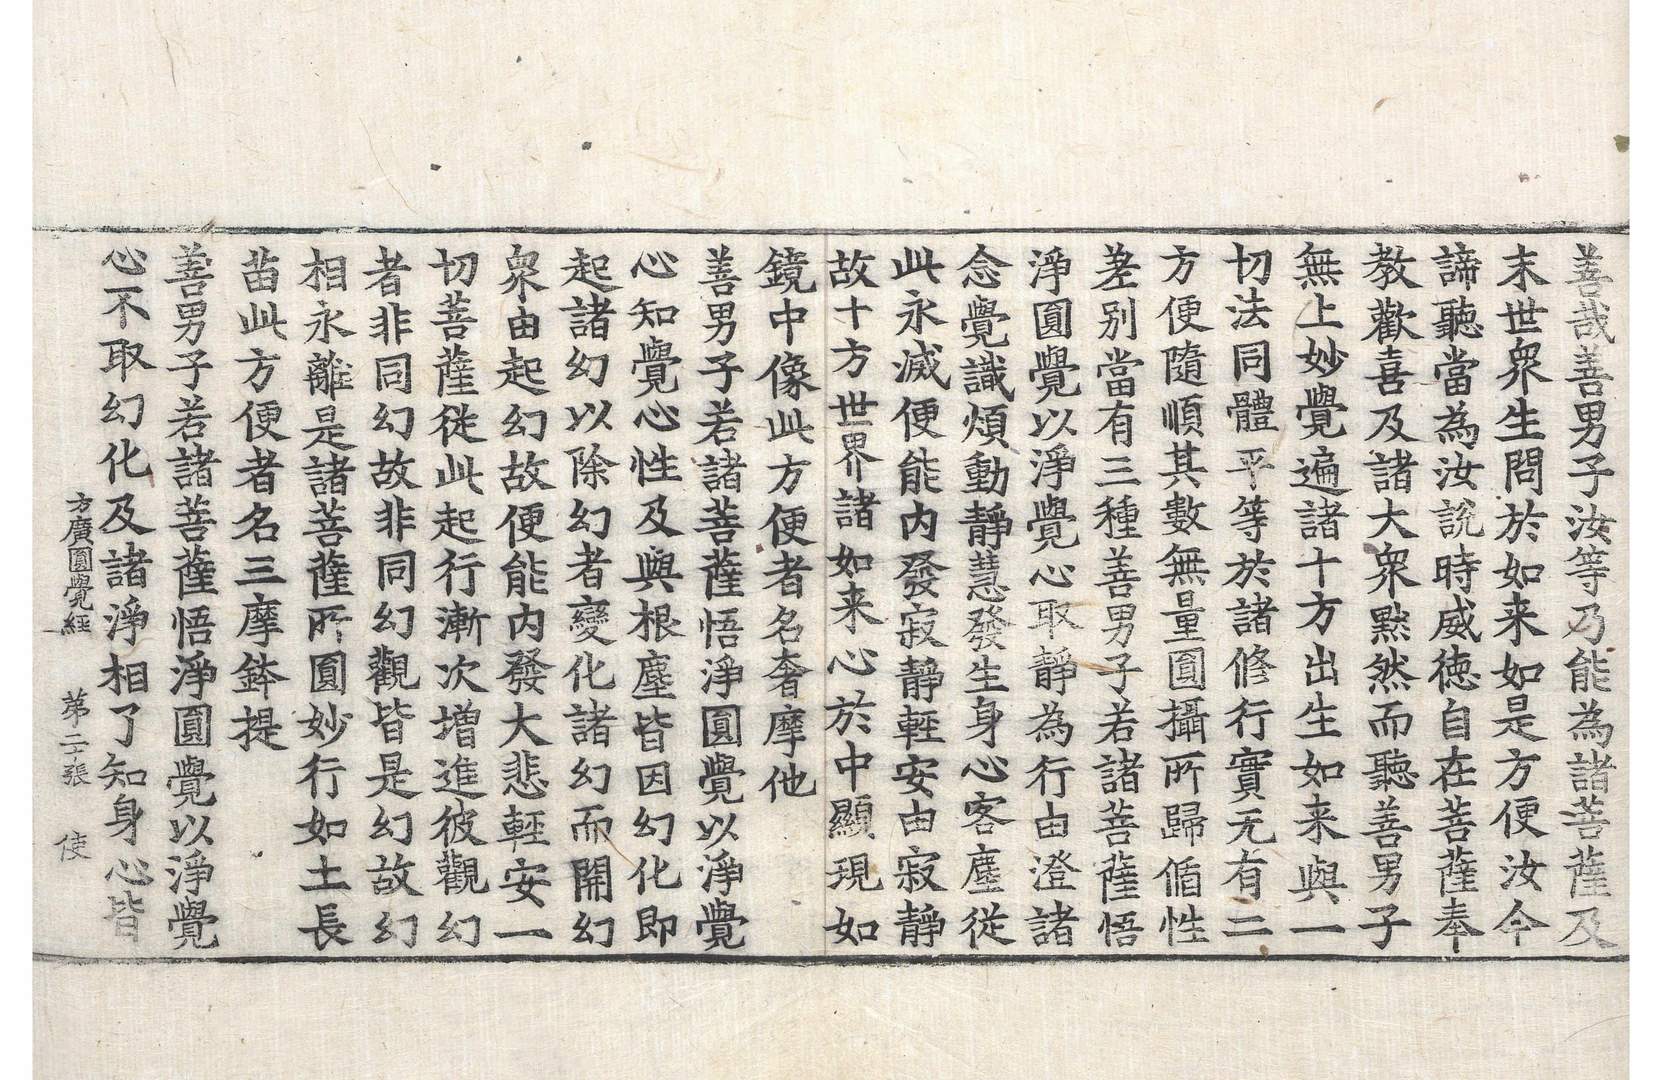 善哉善男子汝等乃能為諸菩薩及
末世衆生問於如来如是方便汝今
諦聽當為汝說時威徳自在菩薩奉
教歡喜及諸大衆黙然而聽善男子
無上妙覺遍諸十方出生如来與一
切法同體平等於諸修行實无有二
方便隨順其數無量圓攝所歸循性
差別當有三種善男子若諸菩薩悟
淨圓覺以淨覺心取靜為行由澄諸
念覺識煩動靜慧發生身心客塵從
此永滅便能内發寂靜輕安由寂靜
故十方世界諸如来心於中顯現如
鏡中像此方便者名奢摩他
善男子若諸菩薩悟淨圓覺以淨覺
心知覺心性及與根塵皆因幻化即
起諸幻以除幻者變化諸幻而開幻
衆由起幻故便能内發大悲輕安一
切菩薩從此起行漸次增進彼觀幻
者非同幻故非同幻觀皆是幻故幻
相永離是諸菩薩所圓妙行如土長
苗此方便者名三摩鉢提
善男子若諸菩薩悟淨圓覺以淨覺
心不取幻化及諸淨相了知身心皆
方廣圓覺経 第二十張 使